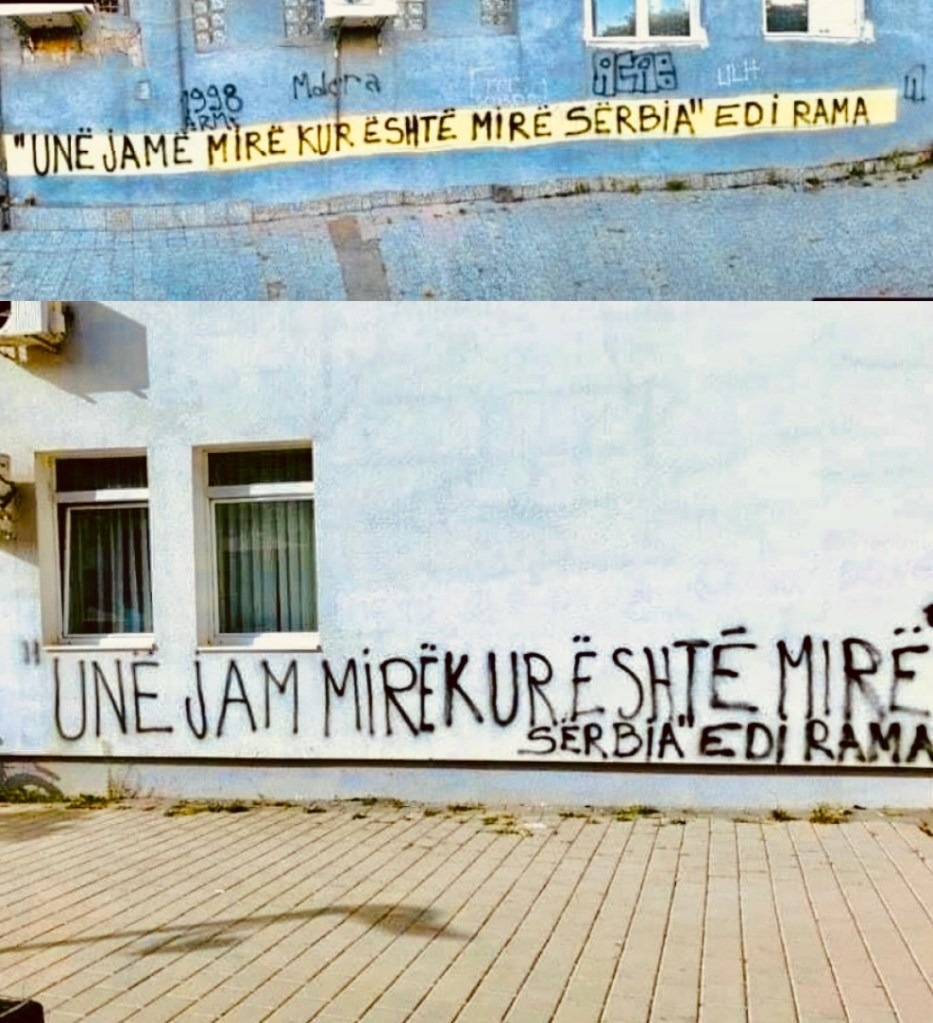 1998
ARMY
Molera
"UNË JAMË MIRË KUR ËSHTË MIRË SËRBIA" EDI RAMA
"UNË JAM MIRË KUR ËSHTË MIRË"
SËRBIA" EDI RAMA